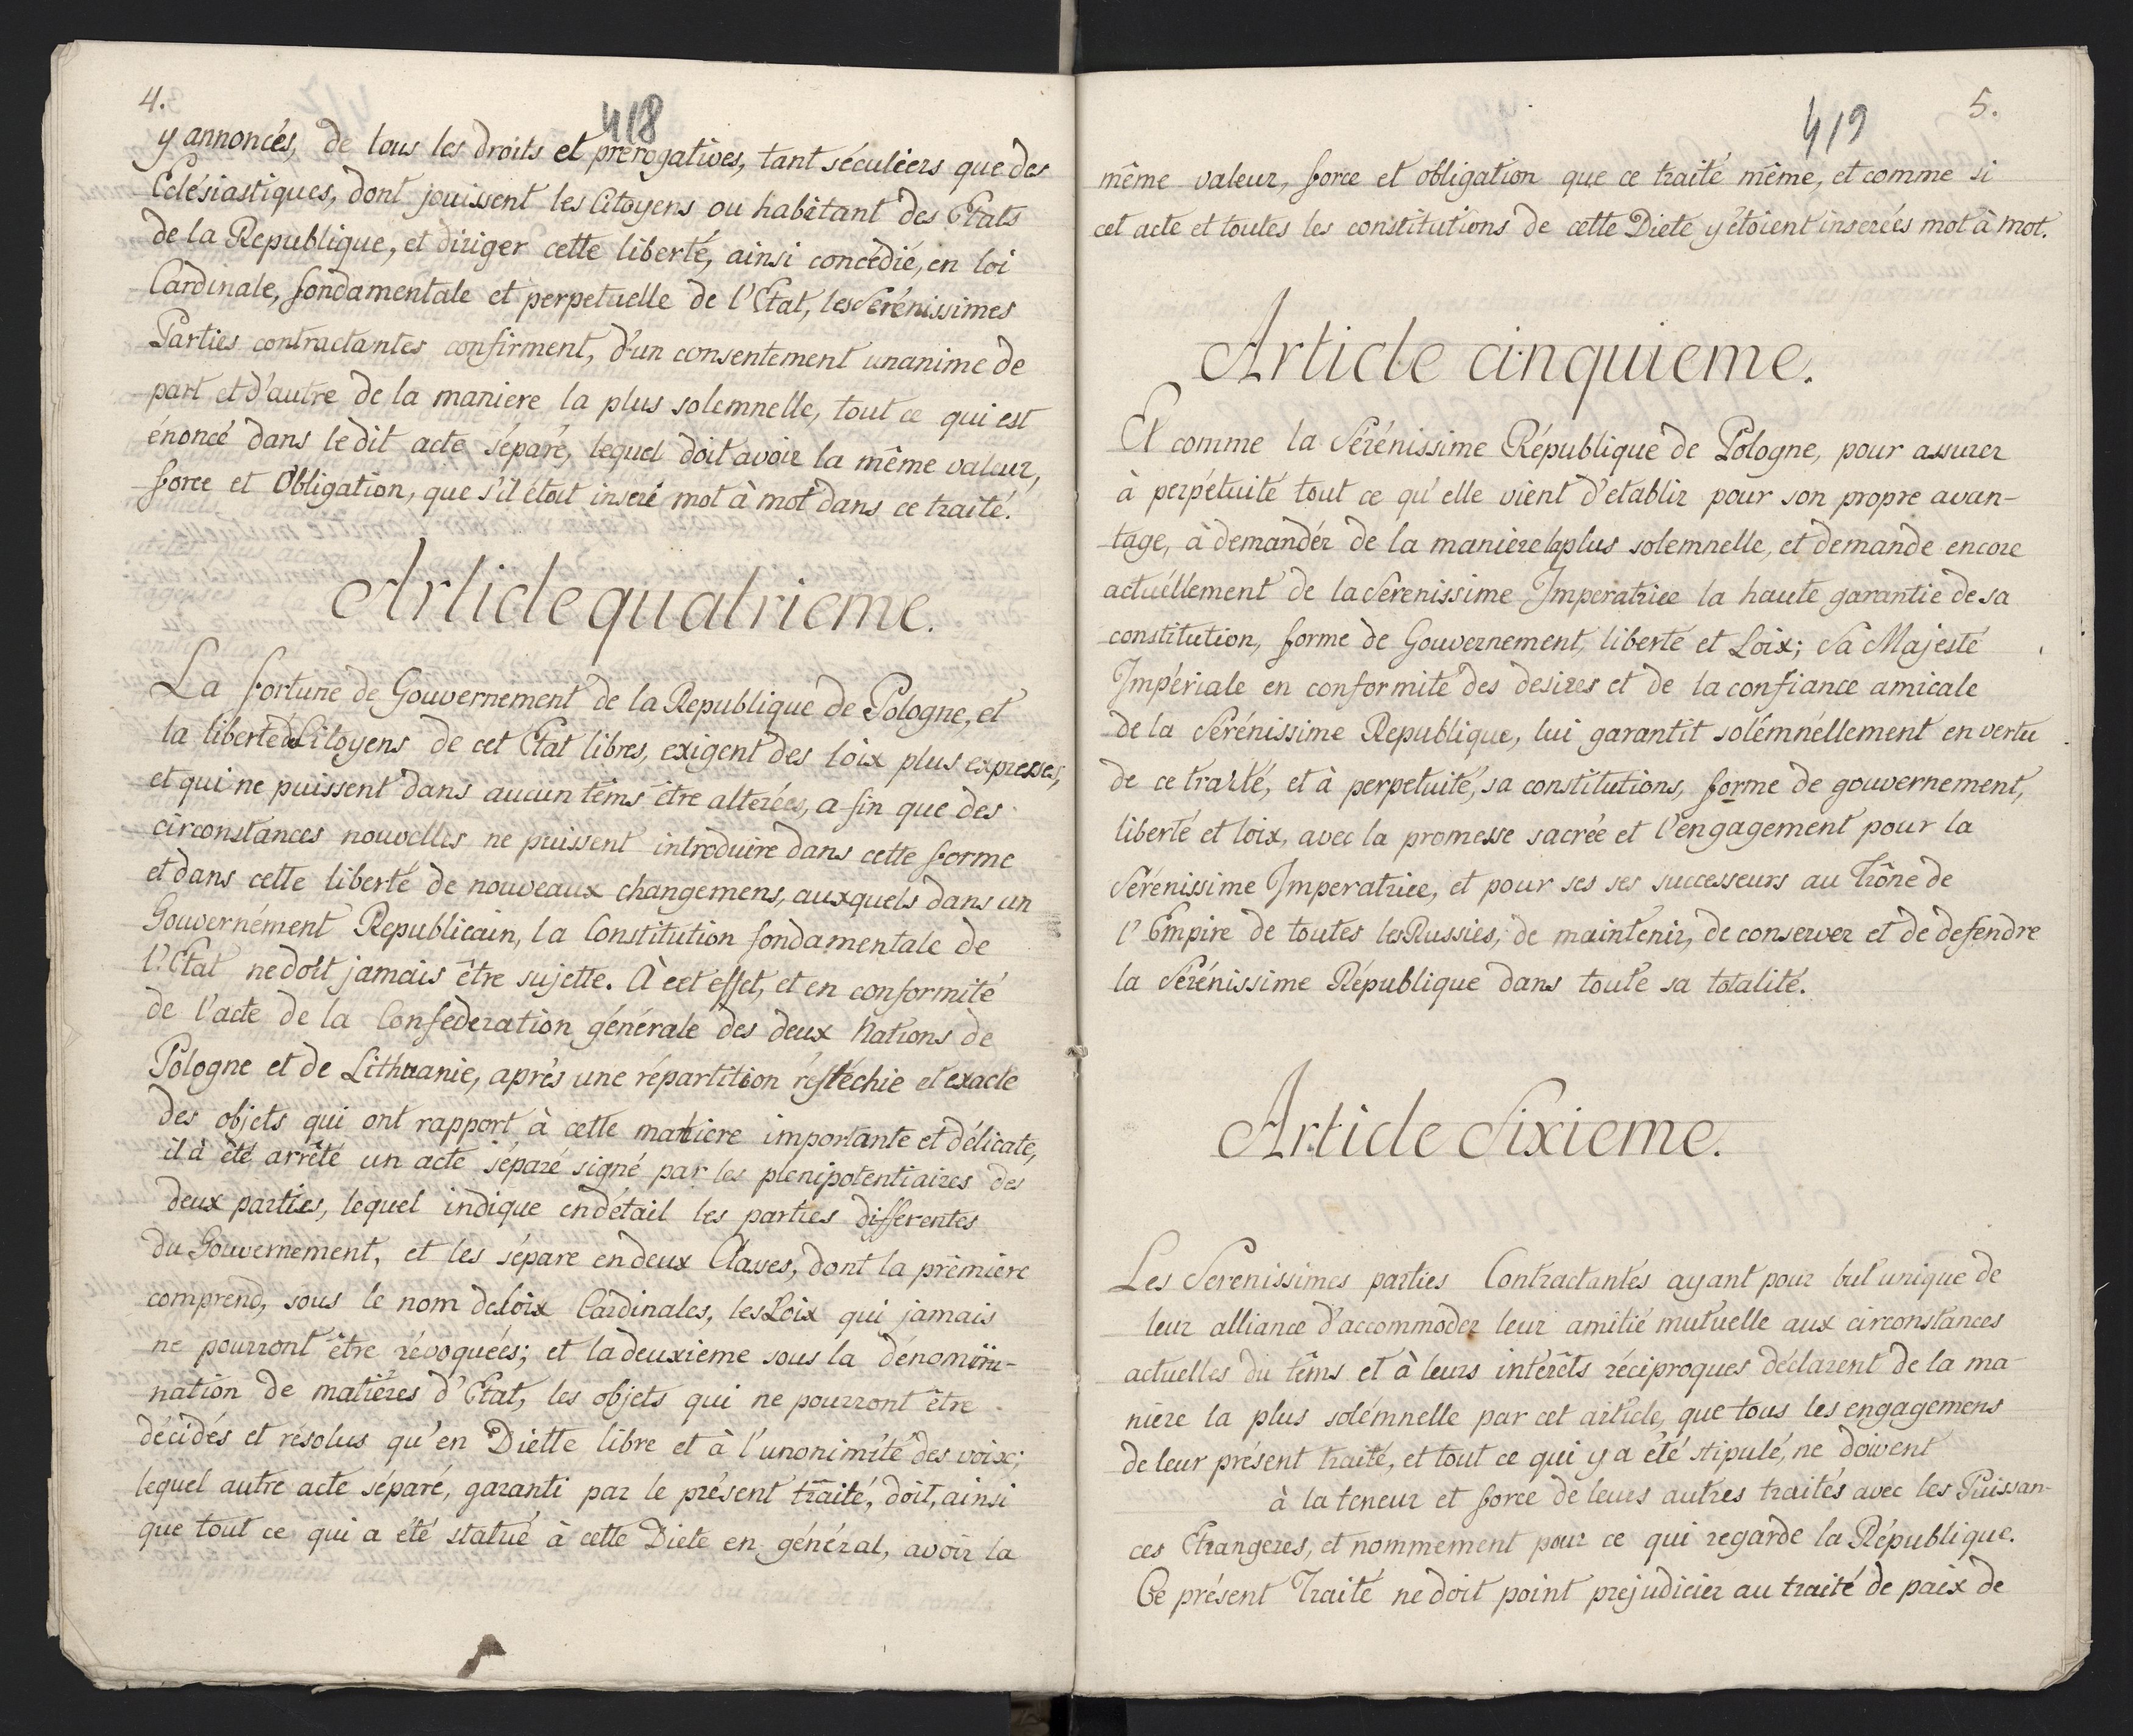 4.
418
y annoncés, de tous les droits et prerogatives, tant séculiers que des
Eclésiastiques, dont jouissent les Citoyens ou habitant des Etats
de la Republique, et diriger cette liberté, ainsi concédié, en loi
Cardinale, fondamentale et perpetuelle de l'Etat, les Serénissimes
Parties contractantes confirment, d'un consentement unanime de
part et d'autre de la maniere la plus solemnelle, tout ce qui est
énoncé dans ledit acte séparé, lequel doit avoir la même valeur,
force et Obligation, que s'il étoit inseré mot à mot dans ce traité.
Article quatrieme.
La fortune de Gouvernement de la Republique de Pologne, et
la liberté de Citoyens de cet Etat libres, exigent des loix plus expresses,
et qui ne puissent dans aucun têms être alterées, a fin que des
circonstances nouvelles ne puissent introduire dans cette forme
et dans cette liberté de nouveaux changemens, auxquels dans un
Gouvernément Republicain, la Constitution fondamentale de
l'Etat ne doit jamais être sujette. A cet effet, et en conformité
de l'acte de la Confederation générale des deux Nations de
Pologne et de Lithuanie, aprés une répartition réfléchie et exacte
des objets qui ont rapport à cette matiere importante et délicate,
il à été arrêté un acte séparé signé par les plenipotentiaires des
deux parties, lequel indique en détail les parties differentes
du Gouvernement, et les sépare en deux Classes, dont la prémiere
comprend, sous le nom de loix Cardinales, les Loix qui jamais
ne pourront être révoquées; et la deuxieme sous la dénomini-
nation de matiéres d'Etat, les objets qui ne pourront être
décidés et résolus qu'en Diette libre et à l'unonimité des voix;
lequel autre acte séparé, garanti par le présent traité, doit, ainsi
que tout ce qui a été statué à cette Diete en général, avoir la
5.
419
même valeur, force et obligation que ce traité même, et comme si
cet acte et toutes les constitutions de cette Diete y étoient inserées mot à mot.
Article cinquieme.
Et comme la Sérénissime République de Pologne, pour assurer
à perpétuité tout ce qu'elle vient d'etablir pour son propre avan-
tage, à demandér de la maniere la plus solemnelle, et demande encore
actuéllement de la Serenissime Imperatrice la haute garantie de sa
constitution, forme de Gouvernement, liberté et Loix; Sa Majesté
Impériale en conformité des desires et de la confiance amicale
de la Sérénissime Republique, lui garantit solémnéllement en vertu
de ce traité, et à perpetuité, sa constitutions, forme de gouvernement,
liberté et loix, avec la promesse sacrée et l'engagement pour la
Sérénissime Imperatrice, et pour ses ses successeurs au Trône de
l'Empire de toutes les Russies, de maintenir, de conserver et de defendre
la Sérénissime République dans toute sa totalité.
Article Sixieme.
Les Serenissimes parties Contractantes ayant pour but unique de
leur alliance d'accommoder leur amitié mutuelle aux circonstances
actuelles du têms et à leurs intérêts réciproques déclarent de la ma-
niere la plus solémnelle par cet article, que tous les engagemens
de leur présent traité, et tout ce qui y a été stipulé, ne doivent
à la teneur et force de leurs autres traités avec les Puissan-
ces Etrangeres, et nommement pour ce qui regarde la République.
Ce présent Traité ne doit point prejudicier au traité de paix de